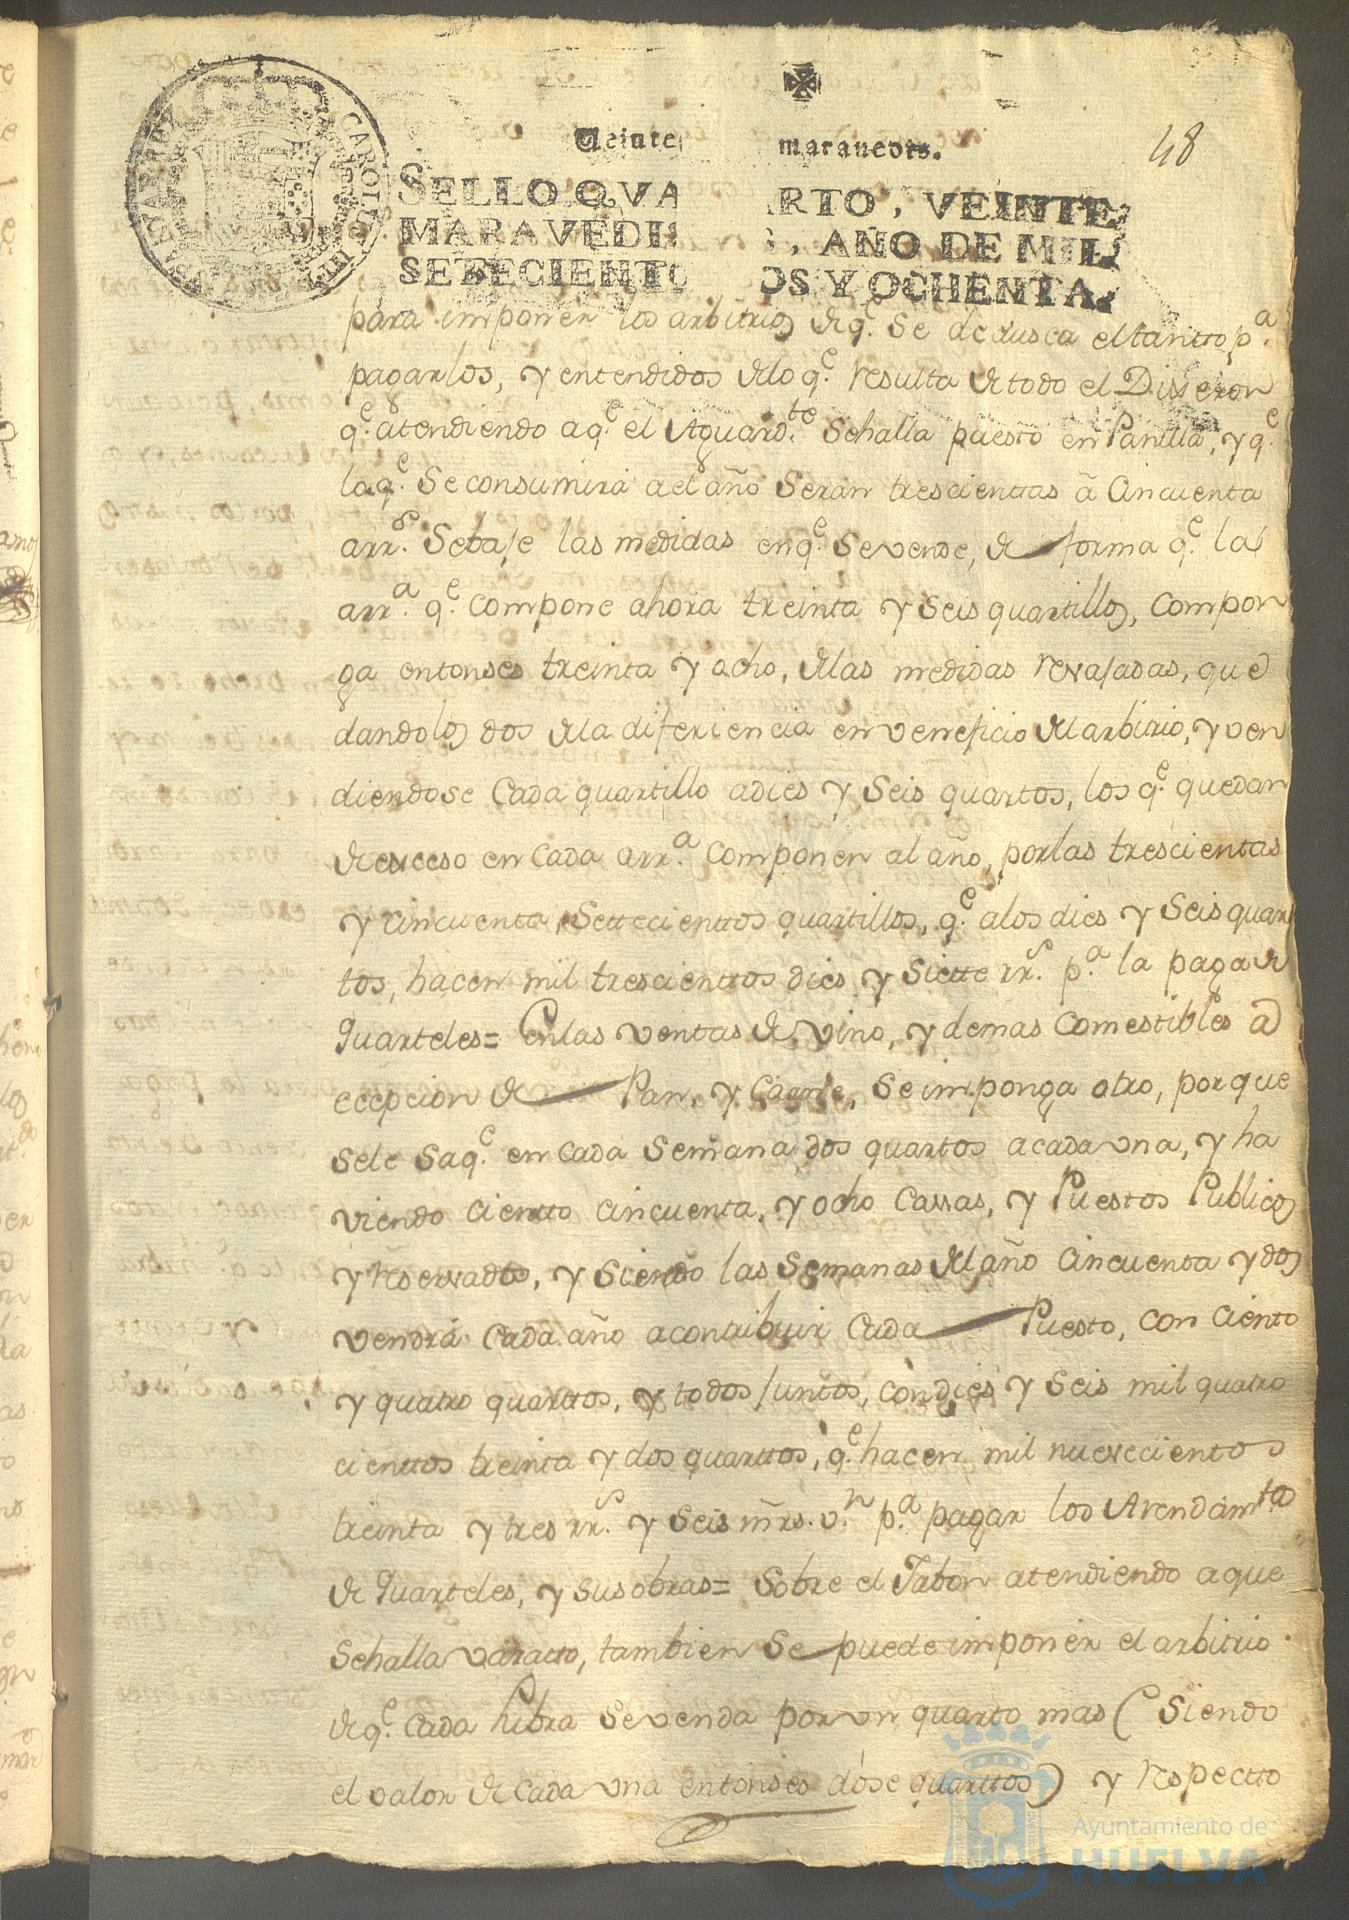 Veinte maravedis.
48
SELLO QVARTO, VEINTE
MARAVEDIS, AÑO DE MIL
SETECIENTOS Y OCHENTA.
CAROLUS III
para imponer los arbitrios de q.e se dedusca el tantto p.a
pagarlos, y entendidos delo q.e resulta de todo el Disseron
q.e atendiendo a q.e el Aguard.te Sehalla puesto en Panilla, y q.e
la q.e Se consumirá a el año Serán trescienttas à Cincuenta
arr.s Sebaje las medidas en q.e Se vende, de forma q.e la
arr.a q.e compone ahora treinta y seis quartillos, compon
ga entonses treinta y ocho, delas medidas revajadas, que
dandolos dos dela diferiencia en veneficio del arbitrio, y ven
diendose Cada quartillo a dies y Seis quartos, los q.e quedan
de exceso en cada arr.a componen al año, por las trescientas
y cincuenta, Settecienttos quartillos, q.e a los dies y Seis quar
tos, hacen mil trescienttos dies y Siette rr.s p.a la paga de
Quarteles = En las ventas de vino, y demas Comestibles a
ecepcion de Pan, y Carne, Se imponga otro, por que
Sele Saq.e en cada Semana dos quartos a cada una, y ha
viendo cientto cincuenta, y ocho Cassas, y Puestos Publicos
y reservados, y Siendo las Semanas del año Cincuenta y dos
vendrá cada año a contribuir Cada Puesto, con Ciento
y quatro quarttos, y todos juntos, con dies y Seis mil quatro
cienttos treinta y dos quarttos, q.e hacen mil nuevecientos
treinta y tres rr.s y Seis mrs. v.n p.a pagar los Arendam.tos
de Quarteles, y sus obras = Sobre el Jabon atendiendo a que
Sehalla varatto, tambien Se puede imponer el arbitrio
de q.e Cada Libra Se venda por un quarto mas (Siendo
el valor de cada una entonses dose quarttos) y respectto
Ayuntamiento de
HUELVA